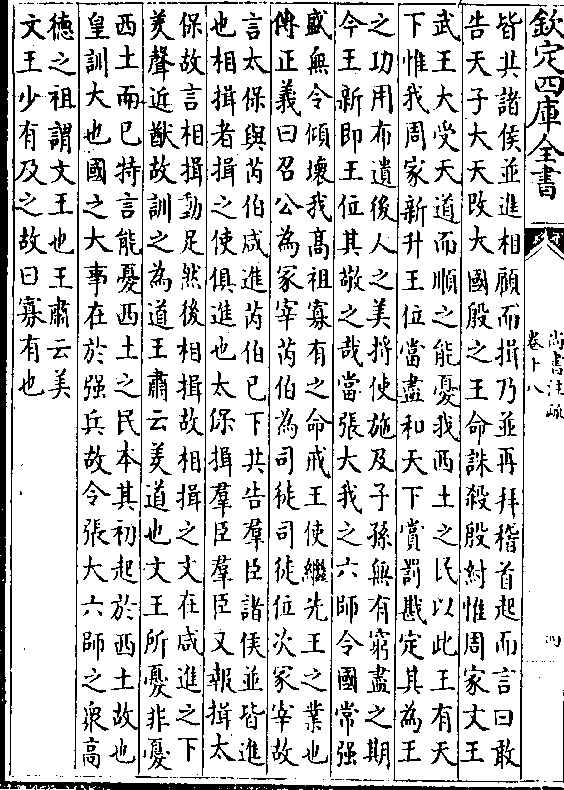 欽定四庫全書
尚書注疏
卷十八
四
皆共諸侯並進相顧而揖乃並再拜稽首起而言曰敢
告天子大天改大國殷之王命誅殺殷紂惟周家文王
武王大受天道而順之能憂我西土之民以此王有天
下惟我周家新升王位當盡和天下賞罰戡定其為王
之功用布遺後人之美將使施及子孫無有窮盡之期
今王新即王位其敬之哉當張大我之六師令國常强
盛無令傾壞我髙祖寡有之命戒王使繼先王之業也
傳正義曰召公為冢宰芮伯為司徒司徒位次冢宰故
言太保與芮伯咸進芮伯已下共告羣臣諸侯並皆進
也相揖者揖之使俱進也太保揖羣臣羣臣又報揖太
保故言相揖動足然後相揖故相揖之文在咸進之下
羑聲近猷故訓之為道王肅云羑道也文王所憂非憂
西土而已特言能憂西土之民本其初起於西土故也
皇訓大也國之大事在於强兵故令張大六師之衆髙
德之祖謂文王也王肅云美
文王少有及之故曰寡有也